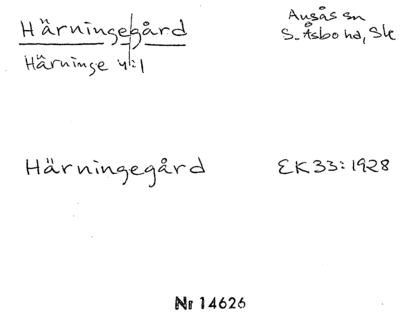 Härningegård
Ausås sn
S. Åsbo hd, Sk
Härninge 4:1
Härningegård
EK 33:1928
Nr 14626